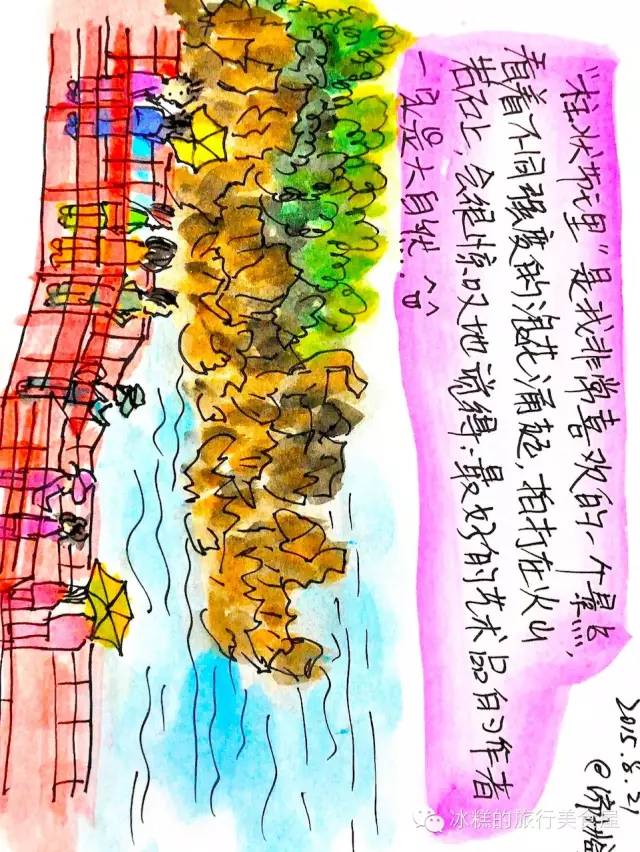 "柱状节理"是我非常喜欢的一个景点,
看着不同强度的浪花涌起,拍打在火山
岩石上,会很惊叹地觉得:最好的艺术品的作者
一定是大自然.
2015.8.21
@济州
冰糕的旅行美食屋